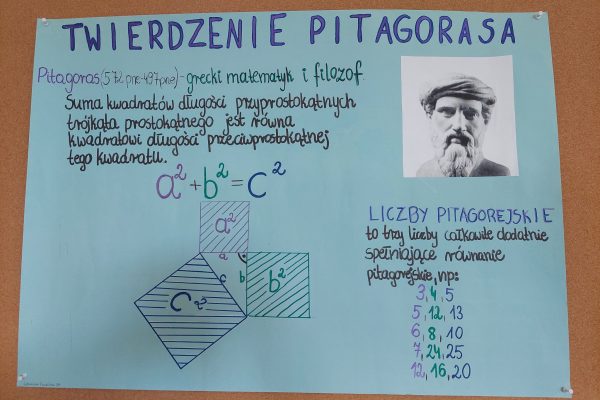 TWIERDZENIE PITAGORASA
Pitagoras (572 pne-497 pne) - grecki matematyk i filozof
Suma kwadratów długości przyprostokątnych
trójkąta prostokątnego jest równa
kwadratowi długości przeciwprostokątnej
tego kwadratu.
a² + b² = c²
a²
a
c
b
b²
c²
LICZBY PITAGOREJSKIE
to trzy liczby całkowite dodatnie
spełniające równanie
pitagorejskie, np:
3, 4, 5
5, 12, 13
6, 8, 10
7, 24, 25
12, 16, 20